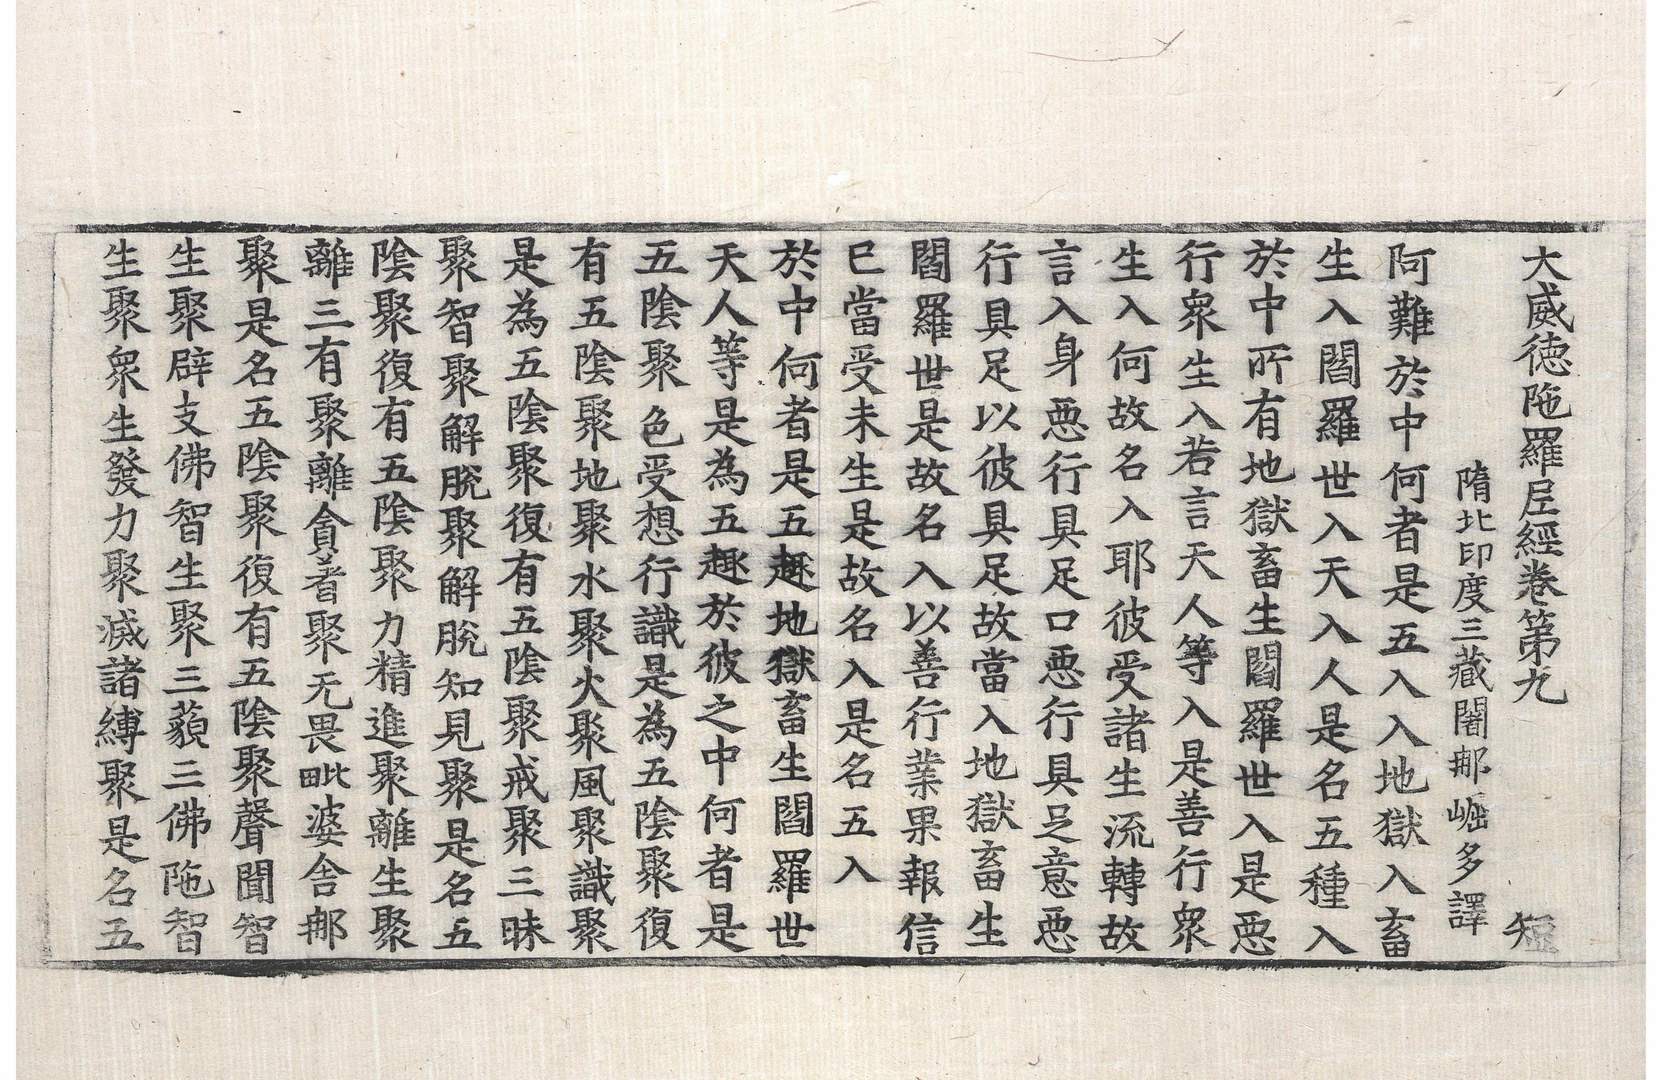 大威德陁羅尼經卷第九 短
隋北印度三藏闍那崛多譯
阿難於中何者是五入入地獄入畜
生入閻羅世入天入人是名五種入
於中所有地獄畜生閻羅世入是惡
行衆生入若言天人等入是善行衆
生入何故名入耶彼受諸生流轉故
言入身惡行具足口惡行具足意惡
行具足以彼具足故當入地獄畜生
閻羅世是故名入以善行業果報信
已當受未生是故名入是名五入
於中何者是五趣地獄畜生閻羅世
天人等是為五趣於彼之中何者是
五陰聚色受想行識是為五陰聚復
有五陰聚地聚水聚火聚風聚識聚
是為五陰聚復有五陰聚戒聚三昧
聚智聚解脫聚解脫知見聚是名五
陰聚復有五陰聚力精進聚離生聚
離三有聚離貪著聚无畏毗婆舍那
聚是名五陰聚復有五陰聚聲聞智
生聚辟支佛智生聚三藐三佛陁智
生聚衆生發力聚滅諸縛聚是名五